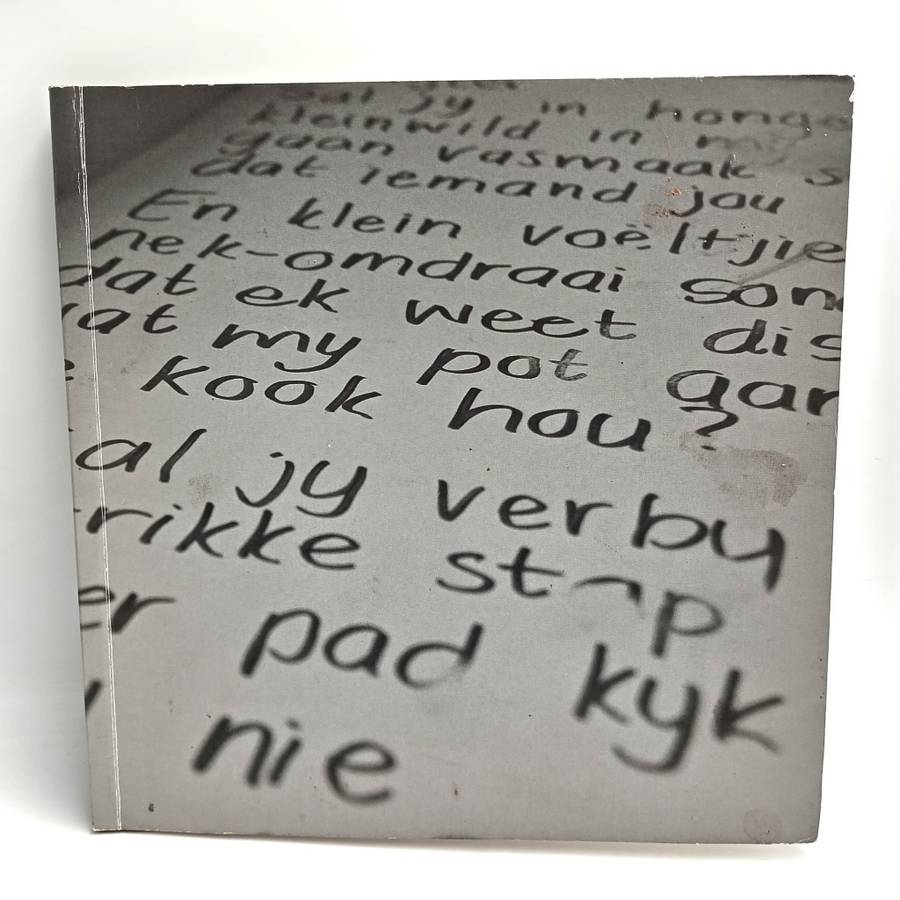 sal jy in honge
kleinwild in my
gaan vasmaak s
dat iemand jou
En klein voëltjie
nek-omdraai son
dat ek weet dis
dat my pot gar
e kook hou?
al jy verby
rikke stap
er pad kyk
nie